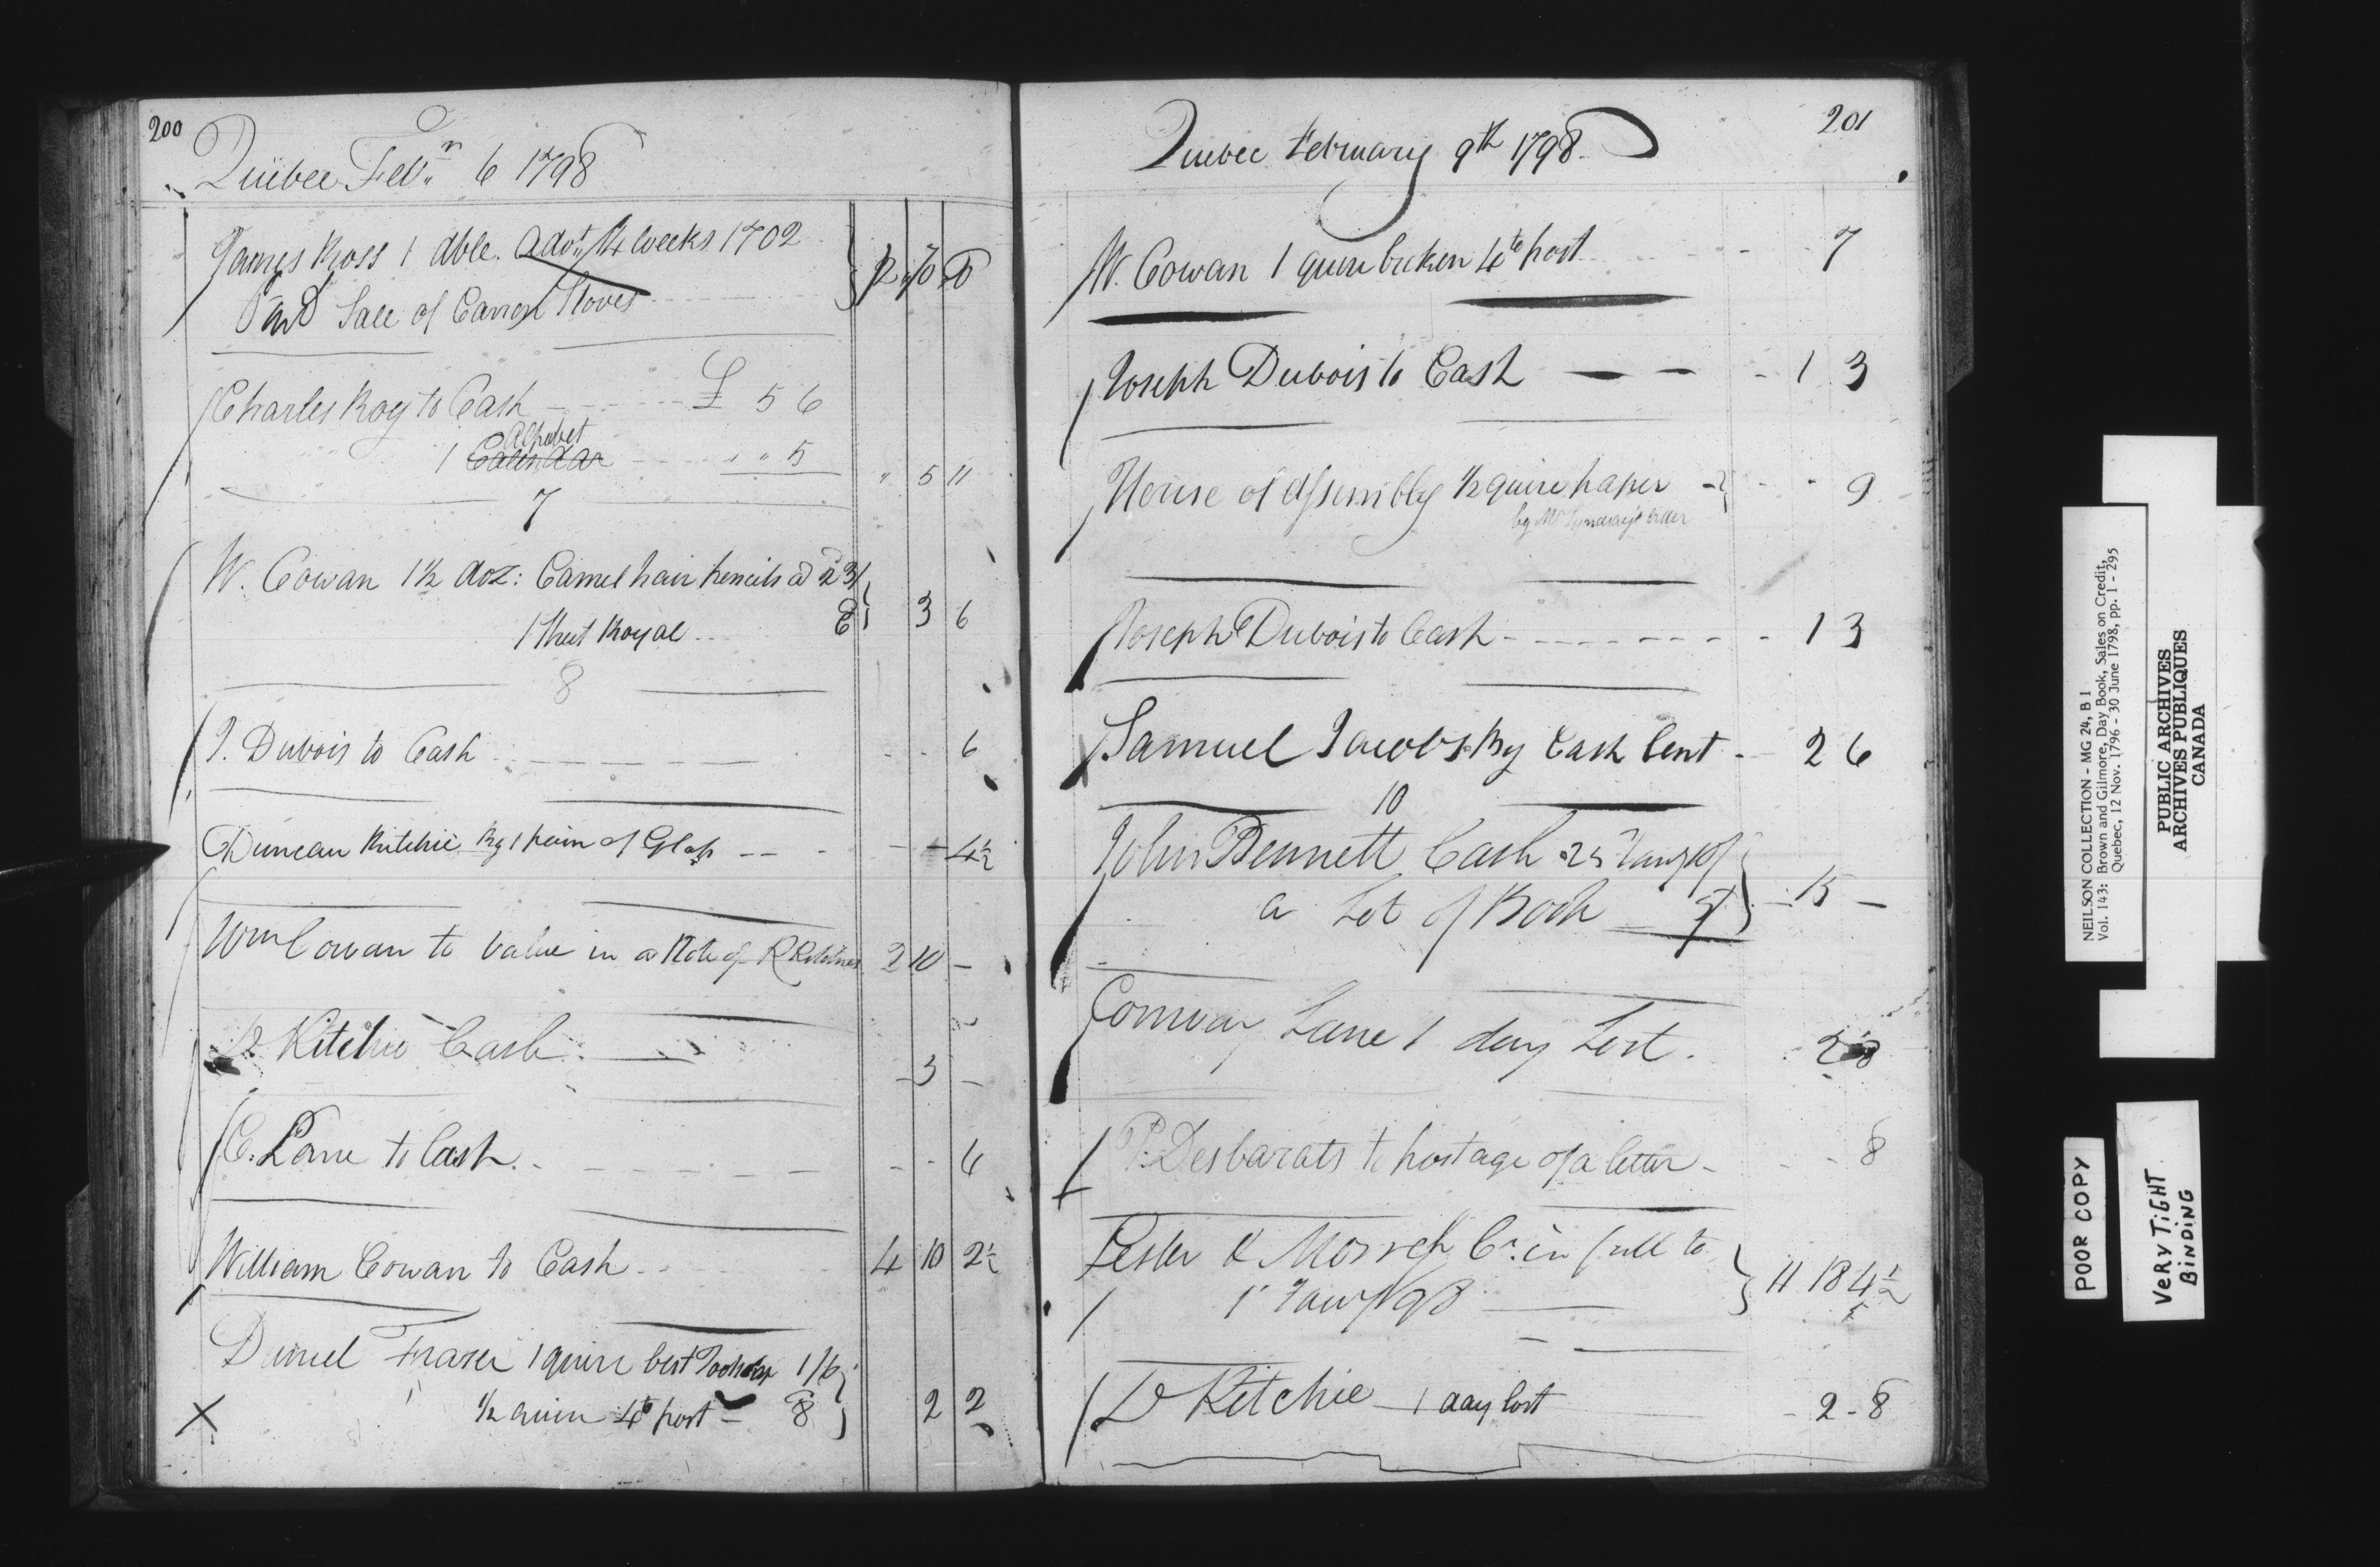 200
Quebec Feb.ry 6 1798
James Ross 1 dble. Advt. 4 weeks 1702
And Sale of Carron Stoves
Charles Roy to Cash - - - £ 5 6
Alphabet
1 Calendar - - - " " 5 " 5 11
7
W. Cowan 1½ doz: Camel hair pencils @ 2
1 Sheet Royal - - 3 6
8
J. Dubois to Cash - - - - - 6
Duncan Ritchie By 1 pain of Glass - - - - 4½
Wm Cowan to Value in a Note of R 2 10 -
Ritchie Cash - 3 -
C. Lane to Cash - - - - - 6
William Cowan to Cash - - 4 10 2½
Daniel Fraser 1 quire best 1/6
½ quire 4to post - 8 2 2
201
Quebec February 9th 1798
W. Cowan 1 quire broken 4to post - - 7
Joseph Dubois to Cash - - - 1 3
House of Assembly ½ quire paper - - - 9
by Mr Lyndsay's order
Joseph Dubois to Cash - - - - - 1 3
Samuel Jacobs By Cash lent - 2 6
10
John Bennett Cash 10/
a Lot of Book 5/ - 15 -
Conway Lane 1 day Lost. - 2 8
P. Desbarats to postage of a letter - - - 8
Lester & Morrogh Cr. in full to
1 Jany/98 11 18 4½
D Ritchie - 1 day lost - 2 - 8
NEILSON COLLECTION - MG 24, B 1
Vol. 143: Brown and Gilmore, Day Book, Sales on Credit,
Quebec, 12 Nov. 1796 - 30 June 1798, pp. 1 - 295
PUBLIC ARCHIVES
ARCHIVES PUBLIQUES
CANADA
POOR COPY
VERY TIGHT
BINDING